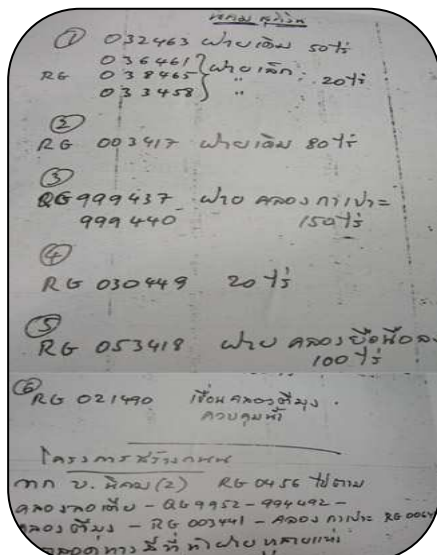 นิคม สุคิริน
① 032463 ฝายเดิม 50 ไร่
036461
RG 038465 ฝายเล็ก 20 ไร่
033458 "
②
RG 003417 ฝายเดิม 80 ไร่
③
QG 999437 ฝาย คลอง กาเปาะ
999440 150 ไร่
④
RG 030449 20 ไร่
⑤
RG 053418 ฝาย คลอง
100 ไร่
⑥ RG 021490 เขื่อนคลองตีมุง
ควบคุมน้ำ
โครงการสร้างถนน
จาก บ. นิคม (2) RG 0456 ไปตาม
คลอง - QG 9952 - 994492 -
คลองตีมุง - RG 003441 - คลอง กาเปาะ
ตลอดทางมีที่ทำฝายหลายแห่ง